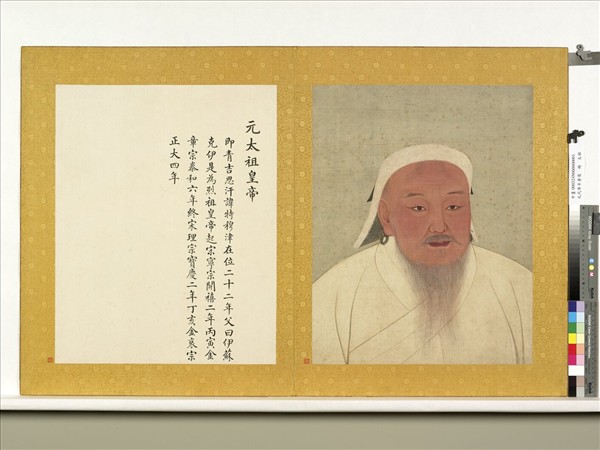 元太祖皇帝
即青吉思汗諱特穆津在位二十二年父曰伊蘇
克伊是為烈祖皇帝起宋寧宗開禧二年丙寅金
章宗泰和六年終宋理宗寶慶二年丁亥金哀宗
正大四年